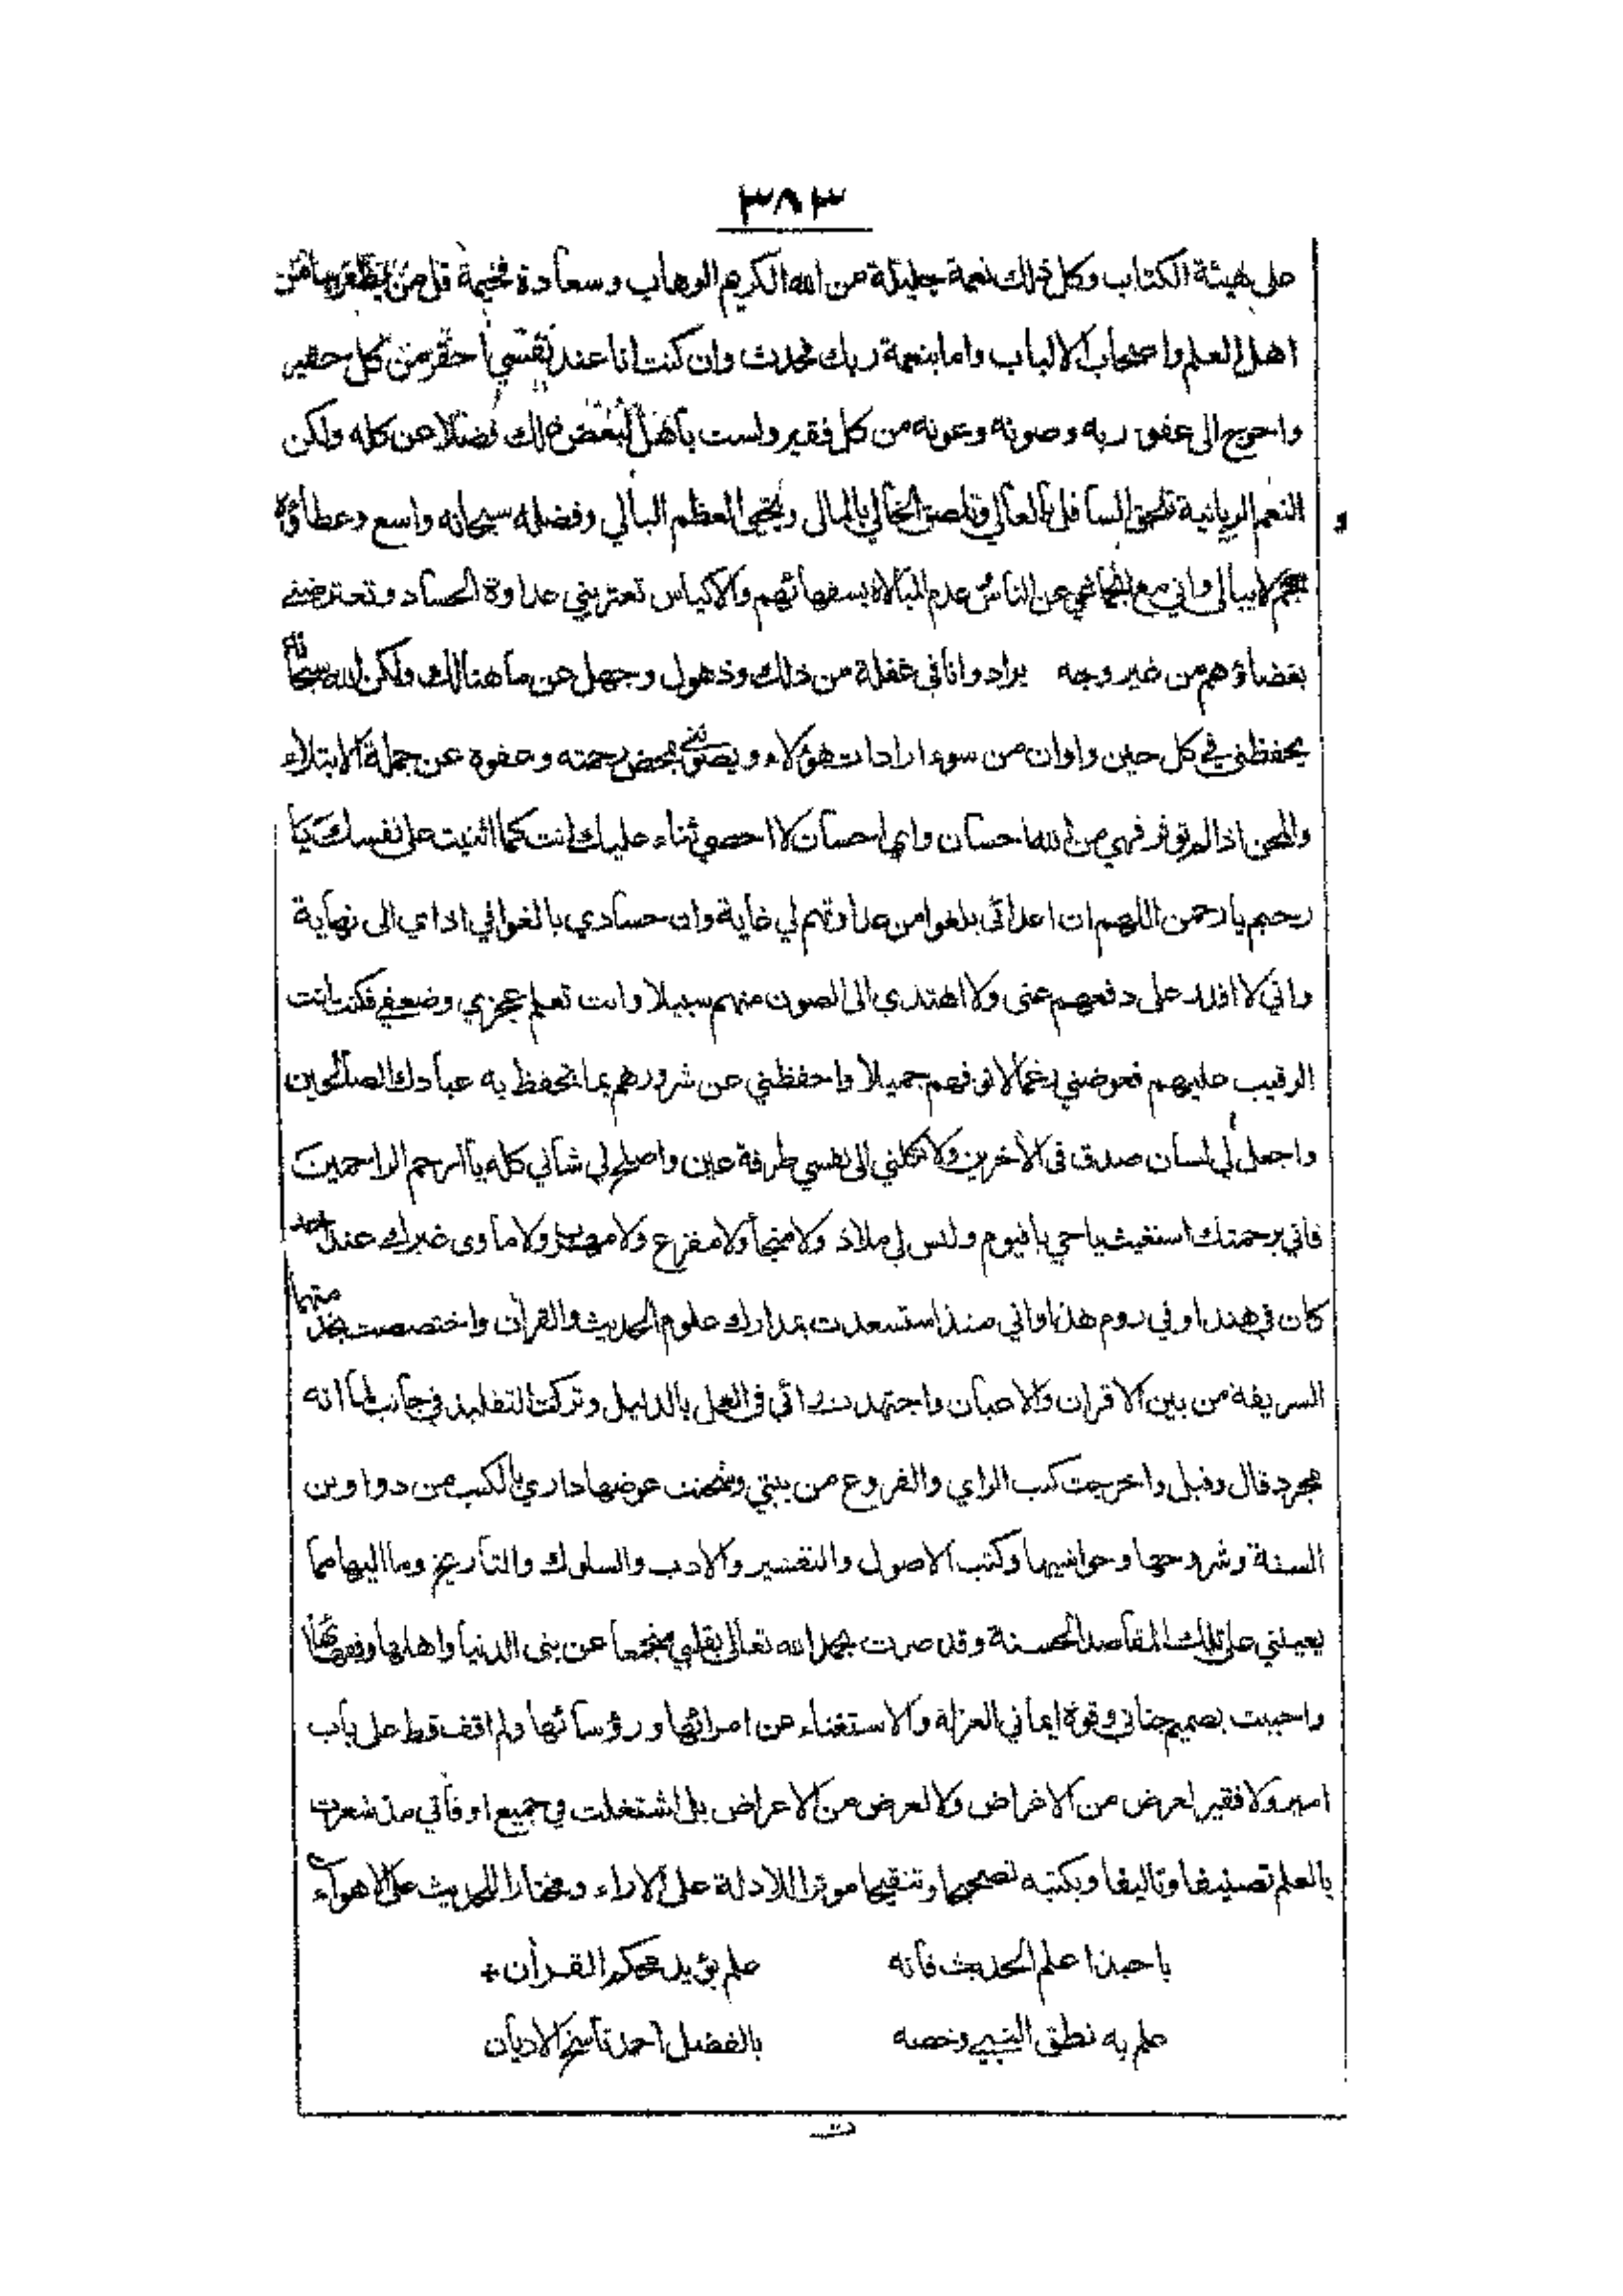 ٣٨٣
على هيئة الكتاب وكل ذلك نعمة جليلة من الله الكريم الوهاب وسعادة فخيمة قل من يظفر بها من
اهل العلم واصحاب الالباب واما بنعمة ربك فحدث وان كنت انا عند نفسي احقر من كل حقير
واحوج الى عفو ربه وصونه وعونه من كل فقير ولست باهل لبعض ذلك فضلا عن كله ولكن
النعم الربانية تلحق السافل بالعالي وتلصق الخالي بالمال وتحيى العظم البالي وفضله سبحانه واسع وعطاؤه
لا يبالي واني مع عن الناس عدم المبالاة بسفهائهم والاكياس تعتريني عداوة الحساد وتعترضني
بغضاؤهم من غير وجه يراد وانا في غفلة من ذلك وذهول وجهل عن ما هنالك ولكن لله سبحانه
يحفظني في كل حين واوان من سوء ارادات هؤلاء ويصونني بمحض رحمته وعفوه عن جملة الابتلاء
والمحن اذا لم توفر فهي من الله احسان وايما احسان لا احصي ثناء عليك انت كما اثنيت على نفسك يا
رحيم يا رحمن اللهم ان اعدائي بلغوا من عداوتهم لي غاية وان حسادي بالغوا في اذاي الى نهاية
واني لا اقدر على دفعهم عني ولا اهتدي الى الصون منهم سبيلا وانت تعلم عجزي وضعفي فكن انت
الرقيب عليهم فعوضني رغما لانوفهم جميلا واحفظني عن شرورهم بما تحفظ به عبادك الصالحين
واجعل لي لسان صدق في الآخرين ولا تكلني الى نفسي طرفة عين واصلح لي شاني كله يا ارحم الراحمين
فاني برحمتك استغيث يا حي يا قيوم وليس لي ملاذ ولا منجأ ولا مفزع ولا ولا مأوى غيرك عند احد
كان في هند او في روم هذا واني منذ استسعدت بمدارك علوم الحديث والقرآن واختصصت بخدمتها
السريفة من بين الاقران والاعيان واجتهدت برائي في العمل بالدليل وتركت التقليد في جانب لما انه
مجرد قال وقيل واخرجت كتب الراي والفروع من بيتي وشحنت عوضها داري بالكتب من دواوين
السنة وشروحها وحواشيها وكتب الاصول والتفسير والادب والسلوك والتأريخ وما اليها مما
يعينني على تلك المقاصد الحسنة وقد صرت بحمد الله تعالى بقلبي منجمعا عن بنى الدنيا واهلها وفقهائها
واحببت بصميم جناني وقوة ايماني العزلة والاستغناء عن امرائها ورؤسائها ولم اقف قط على باب
امير ولا فقير لعرض من الاغراض ولا لعرض من الاعراض بل اشتغلت في جميع اوقاتي مذ شعرت
بالعلم تصنيفا وتاليفا وبكتبه تصحيحا وتنقيحا موثرا للادلة على الآراء ومختارا للحديث على الاهواء
يا حبذا علم الحديث فانه علم يؤيد محكم القرآن
علم به نطق النبي وخصه بالفضل احمد ناسخ الاديان